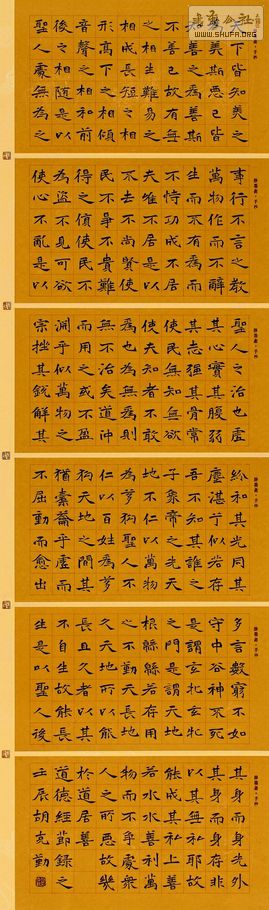 書法公社
WWW.SHUFA.ORG
天下皆知美之
為美斯惡已皆
知善之為善斯
不善已故有無
之相生難易之
相成長短之相
形高下之相傾
音聲之相和前
後之相隨是以
聖人處無為之
事行不言之教
萬物作而不辭
生而不有為而
不恃功成不居
夫唯不居是以
不去不尚賢使
民不爭不貴難
得之貨使民不
為盜不見可欲
使心不亂是以
聖人之治也虛
其心實其腹弱
其志强其骨常
使民無知無欲
使夫知者不敢
為也為無為則
無不治矣道沖
而用之或不盈
淵乎似萬物之
宗挫其銳解其
紛和其光同其
塵湛兮似若存
吾不知其誰之
子象帝之先天
地不仁以萬物
為芻狗聖人不
仁以百姓為芻
狗天地之間其
猶橐籥乎虛而
不屈動而愈出
多言數窮不如
守中谷神不死
是謂玄牝玄牝
之門是謂天地
根緜緜若存用
之不勤天長地
久天地所以能
長且久者以其
不自生故能長
生是以聖人後
其身而身先外
其身而身存非
以其無私耶故
能成其私上善
若水水善利萬
物而不爭處眾
人之所惡故幾
於道居善
道德經節錄之
壬辰胡克勤